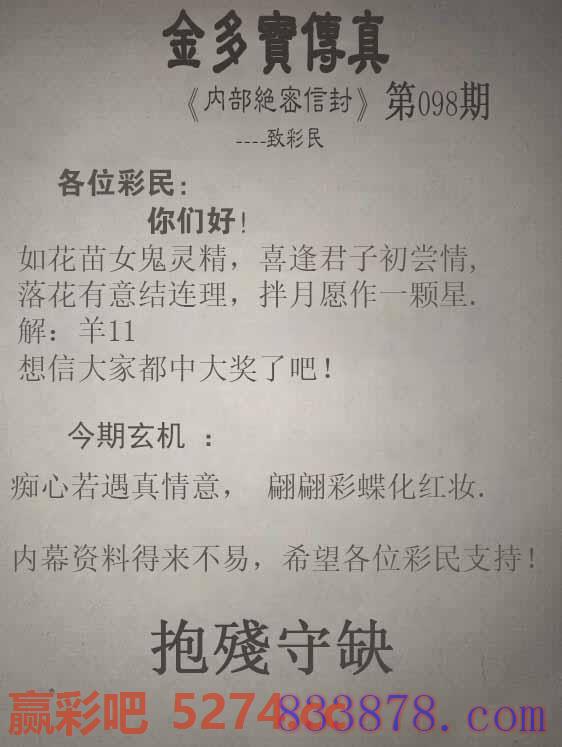 金多寶傳真
《内部絕密信封》第098期
----致彩民
各位彩民:
你们好!
如花苗女鬼灵精，喜逢君子初尝情,
落花有意结连理，拌月愿作一颗星.
解：羊11
想信大家都中大奖了吧！
今期玄机 ：
痴心若遇真情意， 翩翩彩蝶化红妆.
内幕资料得来不易，希望各位彩民支持！
抱殘守缺
赢彩吧 5274.cc
833878.com